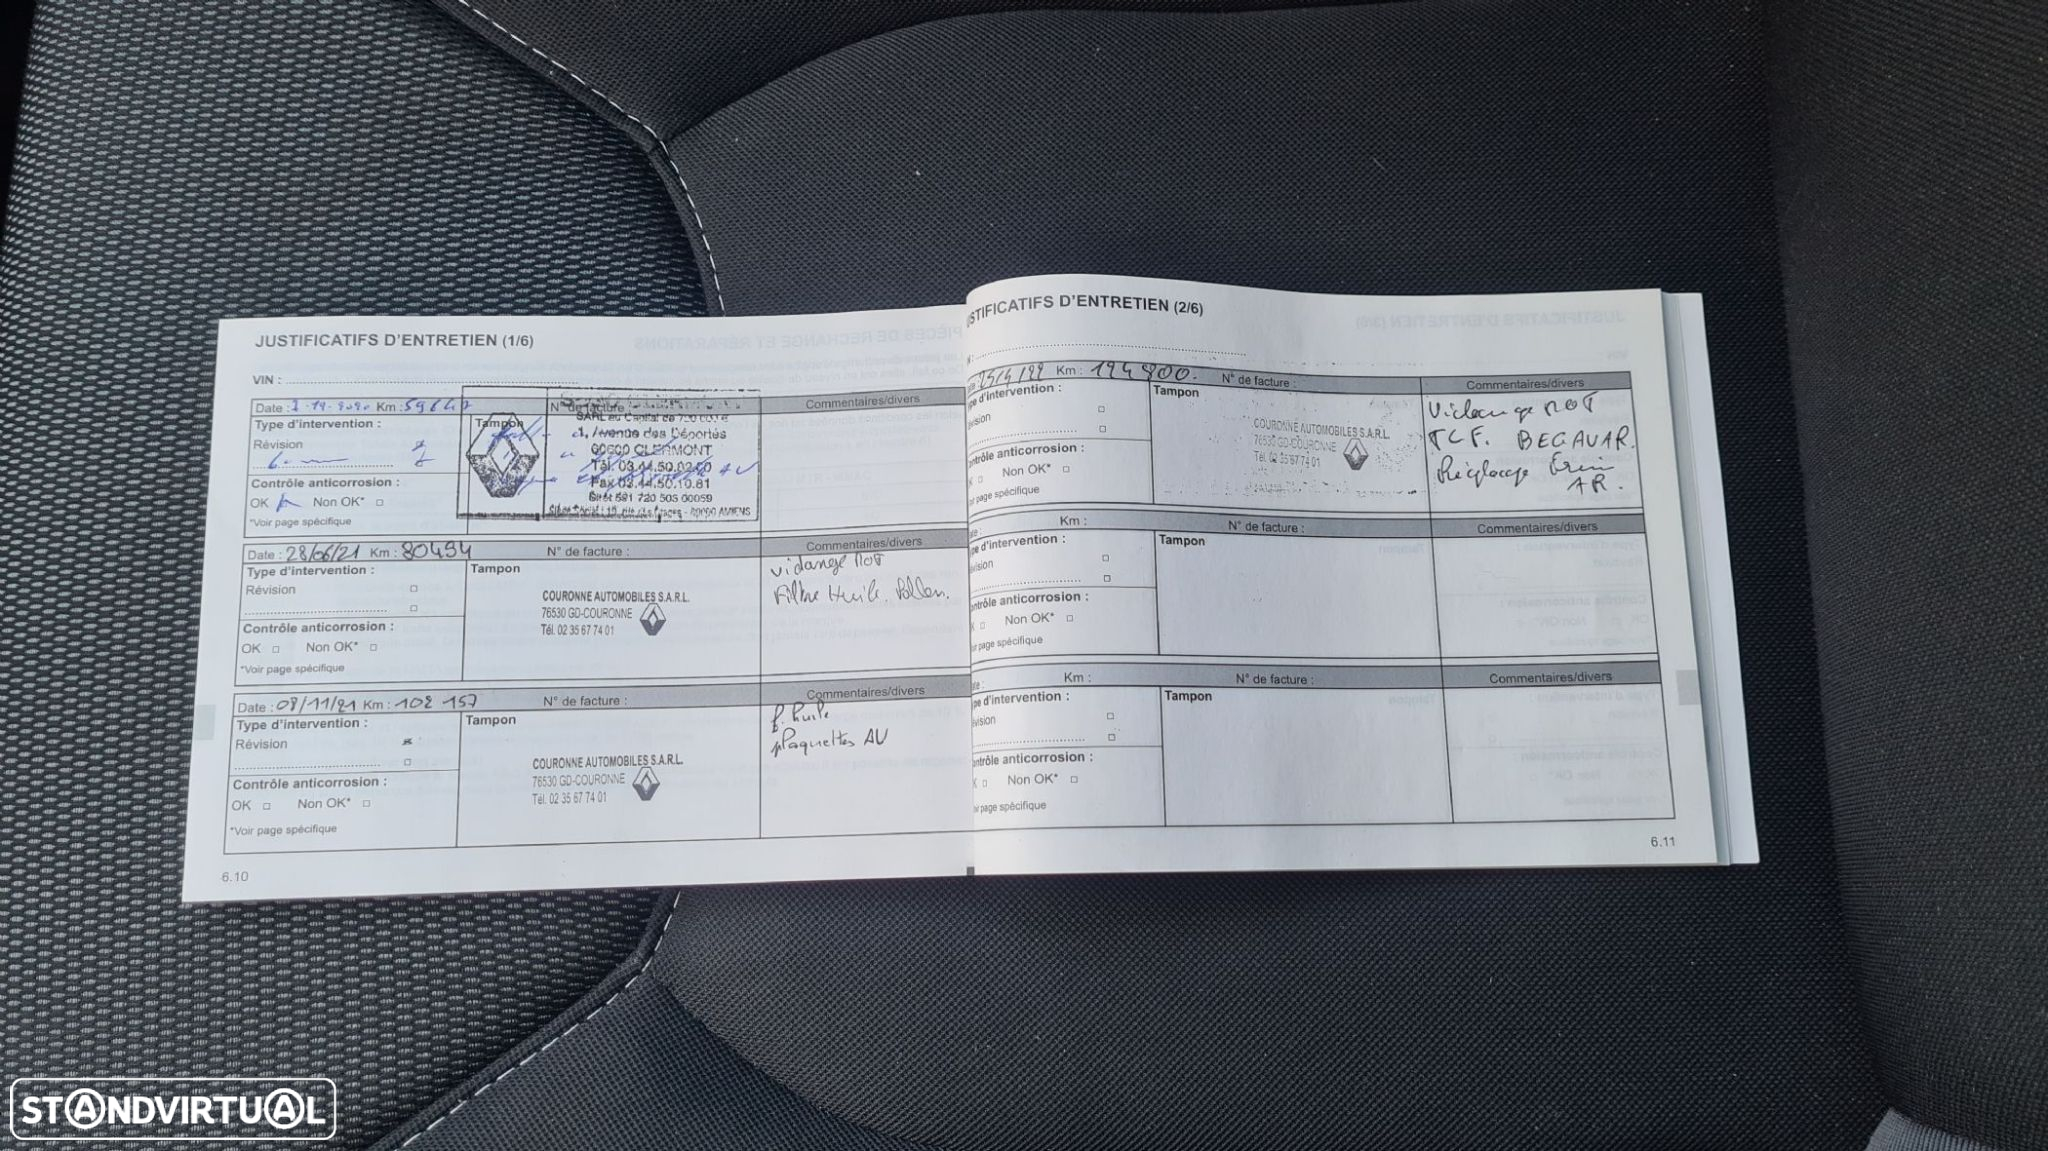 JUSTIFICATIFS D'ENTRETIEN (1/6)
VIN :
Date : Km : 59647 N° de facture Commentaires/divers
Type d'intervention :
Tampon
Révision
Contrôle anticorrosion :
OK Non OK*
*Voir page spécifique
SARL au Capital de
1, Avenue des Déportés
60600 CLERMONT
Tél. 03.44.50.02
Fax 03.44.50.10.81
Siret 591 720 505 00059
AMIENS
Date : 28/06/21 Km : 80494 N° de facture : Commentaires/divers
Type d'intervention :
Révision
Contrôle anticorrosion :
OK Non OK*
*Voir page spécifique
Tampon
COURONNE AUTOMOBILES S.A.R.L.
76530 GD-COURONNE
Tél. 02 35 67 74 01
vidange MOT
Filtre Huile. Pollen.
Date : 08/11/21 Km : 102 157 N° de facture : Commentaires/divers
Type d'intervention :
Révision
Contrôle anticorrosion :
OK Non OK*
*Voir page spécifique
Tampon
COURONNE AUTOMOBILES S.A.R.L.
76530 GD-COURONNE
Tél. 02 35 67 74 01
f. huile
plaquettes AV
6.10
STIFICATIFS D'ENTRETIEN (2/6)
Km : 124 800. N° de facture : Commentaires/divers
pe d'intervention :
évision
ntrôle anticorrosion :
Non OK*
ir page spécifique
Tampon
COURONNE AUTOMOBILES S.A.R.L.
76530 GD-COURONNE
Tél. 02 35 67 74 01
Vidange MOT
Réglage Frein
AR.
Km : N° de facture : Commentaires/divers
pe d'intervention :
évision
ntrôle anticorrosion :
Non OK*
ir page spécifique
Tampon
Km : N° de facture : Commentaires/divers
pe d'intervention :
évision
ntrôle anticorrosion :
Non OK*
ir page spécifique
Tampon
6.11
STANDVIRTUAL